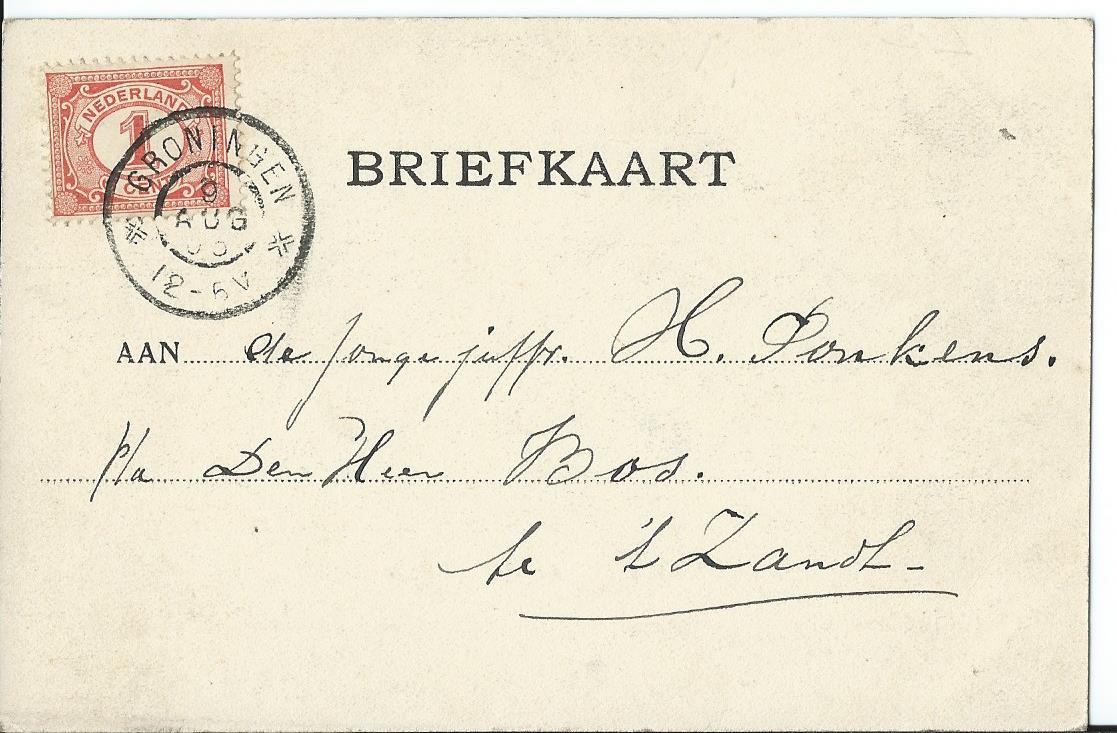 NEDERLAND
1
CENT
GRONINGEN
9
AUG
12-5V
BRIEFKAART
AAN de Jonge juffr. H. Ponkens.
p/a Den Heer Bos.
te 't Zandt-